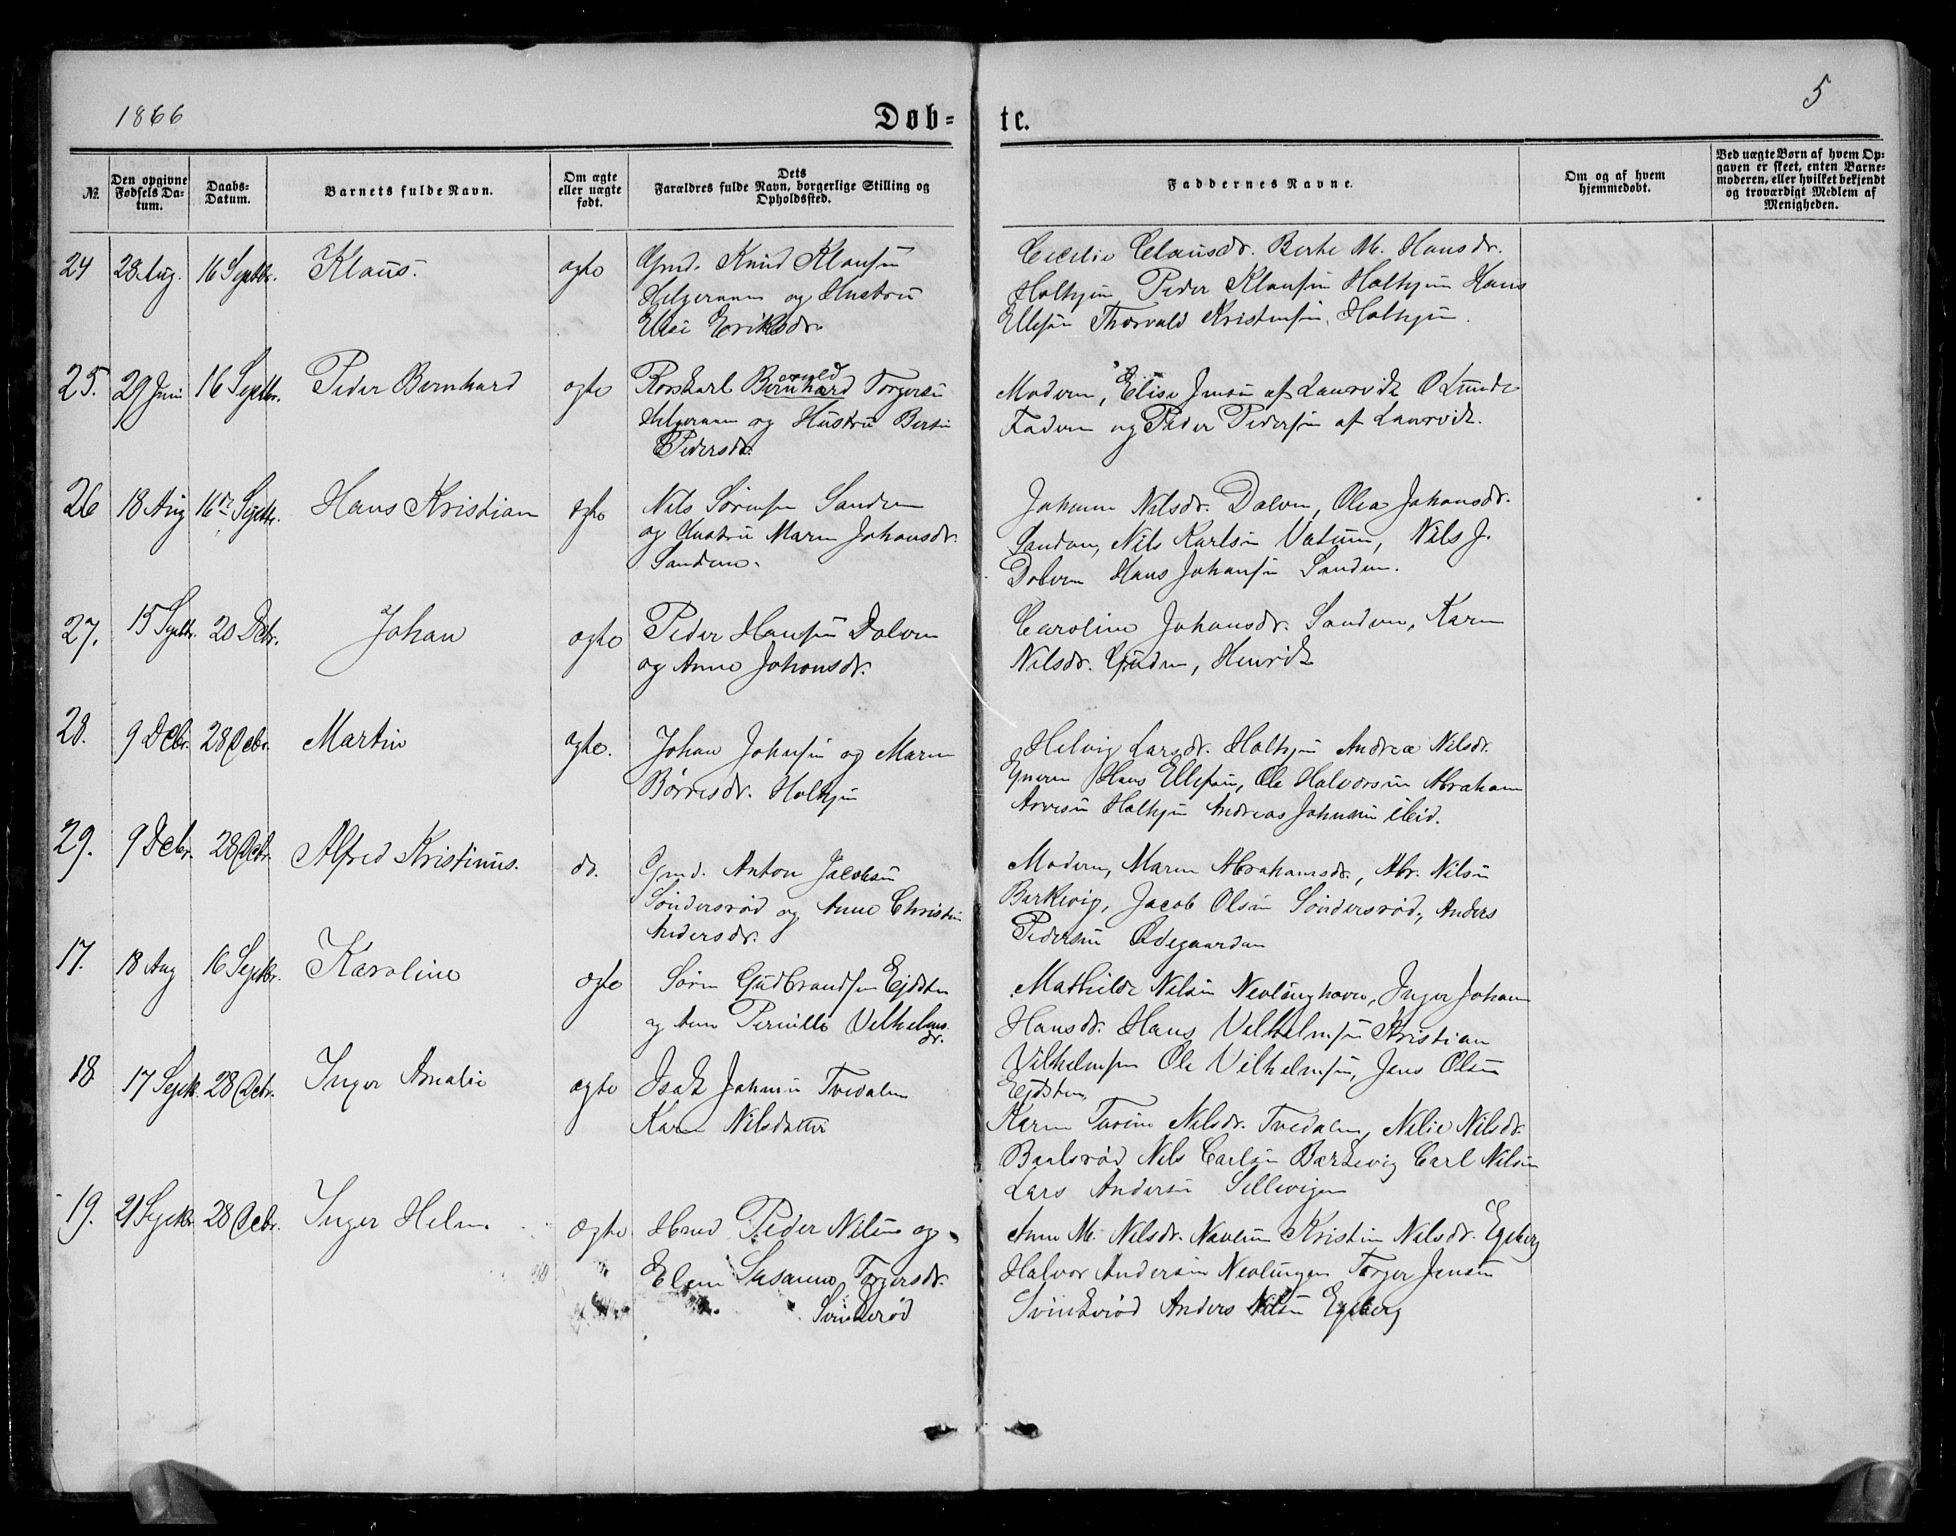 1866
Døb-
te.
5
№
Den opgivne Fødsels Da-tum.
Daabs-Datum.
Barnets fulde Navn.
Om ægte eller uægte født.
Dets Forældres fulde Navn, borgerlige Stilling og Opholdssted.
Faddernes Navne.
Om og af hvem hjemmedøbt.
Ved uægte Børn af hvem Op-gaven er skeet, enten Barne-moderen, eller hvilket bekjendt og troværdigt Medlem af Menigheden.
24 28 Aug. 16 Septbr. Klaus. ægte Gmd. Knud Klausen
Helgeraaen og Hustru
Else Eriksdr.
Cecilie Clausdr. Berte M. Hansdr.
Holtejen Peder Klausen Holtejen Hans
Ellefsen Thorvald Kristensen, Holtejen.
25. 29 Juni 16 Septbr. Peder Bernhard ægte Bernhard Torgersen
Helgeraaen og Hustru Bertine
Pedersdr.
Moderen, Elise Jensen af Laurvik O Lunde
Faderen og Peder Pedersen af Laurvik.
26 18 Aug 16 Septbr. Hans Kristian ægte Nils Sørensen Sanden
og Hustru Maren Johansdr.
Sanden.
Johanne Nilsdr. Dolven, Olea Johansdr.
Sanden, Nils Karlsen Vatum, Nils J.
Dolven Hans Johansen Sanden.
27. 15 Septbr. 20 Octbr. Johan ægte Peder Hansen Dolven
og Anne Johansdr.
Caroline Johansdr. Sanden, Karen
Nilsdr. Henrik
28. 9 Octbr. 28 Octbr. Martin ægte. Johan Johnsen og Maren
Børresdr. Holtejen
Helvig Larsdr. Holtejen Andrea Nilsdr.
Hans Ellefsen, Ole Halvorsen Abraham
Arvesen Holtejen Andreas Johnsen ibid.
29. 9 Octbr. 28 Octbr. Alfred Kristinus. do. Gmd. Anton Jacobsen
Søndersrød og Anne Christine
Andersdr.
Moderen, Maren Abrahamsdr., Abr. Nilsen
Barkevig, Jacob Olsen Søndersrød, Anders
Pedersen Ødegaarden
17. 18 Aug 16 Septbr. Karoline ægte Søren Gudbrandsen Ejdsten
og Anne Pernille Velhelms
dr.
Mathilde Nilsen Nevlunghavn, Inger Johanne
Hansdr. Hans Velhelmsen Kristian
Vilhelmsen Ole Vilhelmsen, Jens Olsen
Ejdsten.
18. 17 Septb. 28 Octbr. Inger Amalie ægte Isak Johnsen Tvedalen
Karen Nilsdatter
Karen Torine Nilsdr. Tvedalen, Nilie Nilsdr.
Baalsrød Nils Carlsen Barkevig Carl Nilsen
Lars Andersen Sillevigen
19. 21 Septbr. 28 Octbr. Inger Helene ægte Hmd Peder Nilsen og
Elen Susanne Torgersdr.
Svinkerød
Anne M. Nilsdr. Kristine Nilsdr. Egeberg
Halvor Andersen Nevlungen Torger Jensen
Svinkerød Anders Nilsen Egeberg